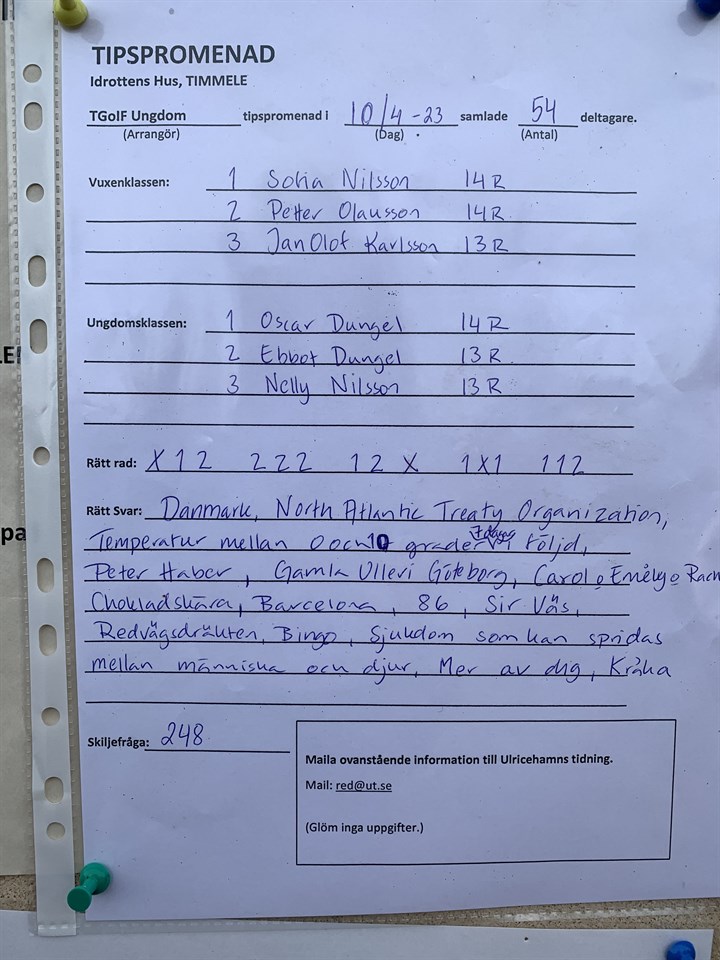 TIPSPROMENAD
Idrottens Hus, TIMMELE
TGoIF Ungdom tipspromenad i 10/4 -23 samlade 54 deltagare.
(Arrangör) (Dag) (Antal)
Vuxenklassen: 1 Sofia Nilsson 14 R
2 Petter Olausson 14 R
3 Jan Olof Karlsson 13 R
Ungdomsklassen: 1 Oscar Dungel 14 R
2 Ebbot Dungel 13 R
3 Nelly Nilsson 13 R
Rätt rad: X12 222 12X 1X1 112
Rätt Svar: Danmark, North Atlantic Treaty Organization,
Temperatur mellan 0 och 10 grader 7 dagar i följd,
Peter Haber, Gamla Ullevi Göteborg, Carol o Emely o Rach
Chokladskära, Barcelona, 86, Sir Väs,
Redvägsdräkten, Bingo, Sjukdom som kan spridas
mellan människa och djur, Mer av dig, Kråka
Skiljefråga: 248
Maila ovanstående information till Ulricehamns tidning.
Mail: red@ut.se
(Glöm inga uppgifter.)
LE
pa